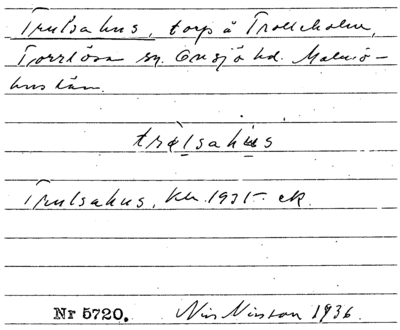 Trulsahus, torp å Trolleholm,
Torrlösa sn. Onsjö hd. Malmö-
hus län.
trɵlsahus
Trulsahus, kla. 1931- ek.
Nr 5720. Nils Nilsson 1936.